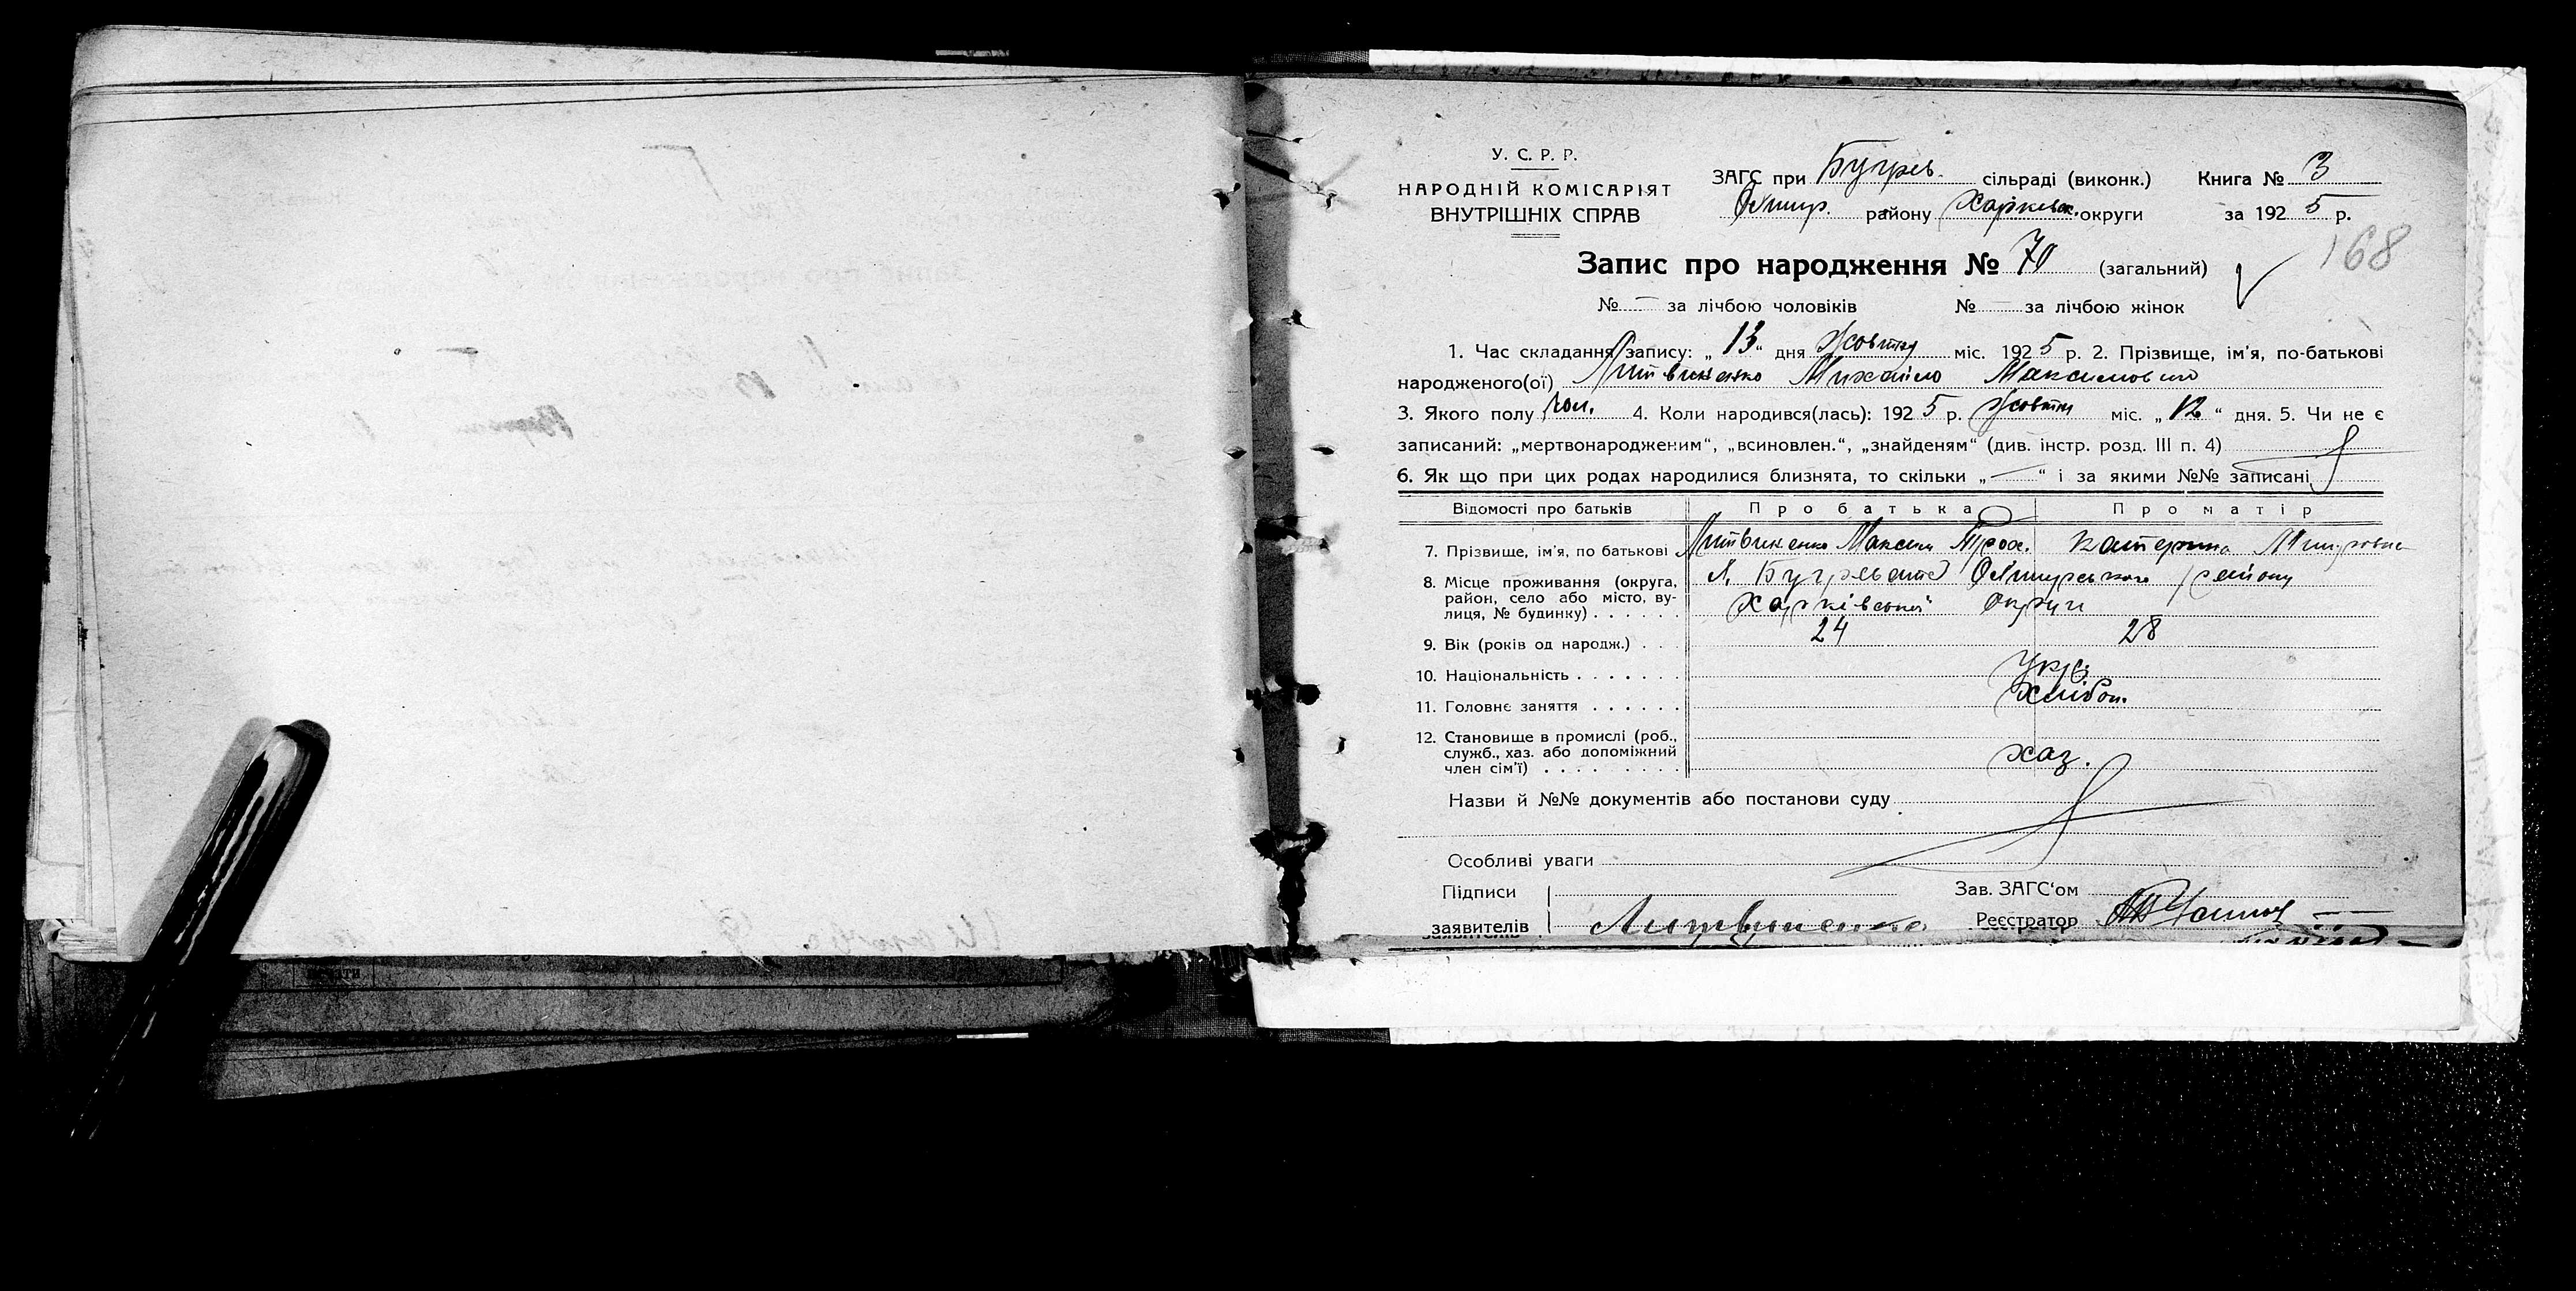 У. С. Р. Р.
НАРОДНІЙ КОМІСАРІЯТ
ВНУТРІШНІХ СПРАВ
ЗАГС при Бугрев. сільраді (виконк.) Книга № 3
району Харківськ. округи за 1925 р.
168
Запис про народження № 70 (загальний)
№ — за лічбою чоловіків № за лічбою жінок
1. Час складання запису: „13“ дня Жовтня міс. 1925 р. 2. Прізвище, ім'я, по-батькові
народженого(ої) Литвиненко Михайло Максимович
3. Якого полу чол. 4. Коли народився(лась): 1925 р. Жовтня міс. „12“ дня. 5. Чи не є
записаний: „мертвонародженим“, „всиновлен.“, „знайденям“ (див. інстр. розд. III п. 4)
6. Як що при цих родах народилися близнята, то скільки „—“ і за якими №№ записані
Відомості про батьків Про батька Про матір
7. Прізвище, ім'я, по батькові Литвиненко Максим Троф. Катерина
8. Місце проживання (округа, район, село або місто, вулиця, № будинку) району
Харківської Округи
9. Вік (років од народж.) 24 28
10. Національність Укр.
11. Головне заняття Хлібор.
12. Становище в промислі (роб., служб., хаз. або допоміжний член сім'ї) хаз.
Назви й №№ документів або постанови суду
Особливі уваги
Підписи Зав. ЗАГС'ом
заявителів Литвиненко Реєстратор